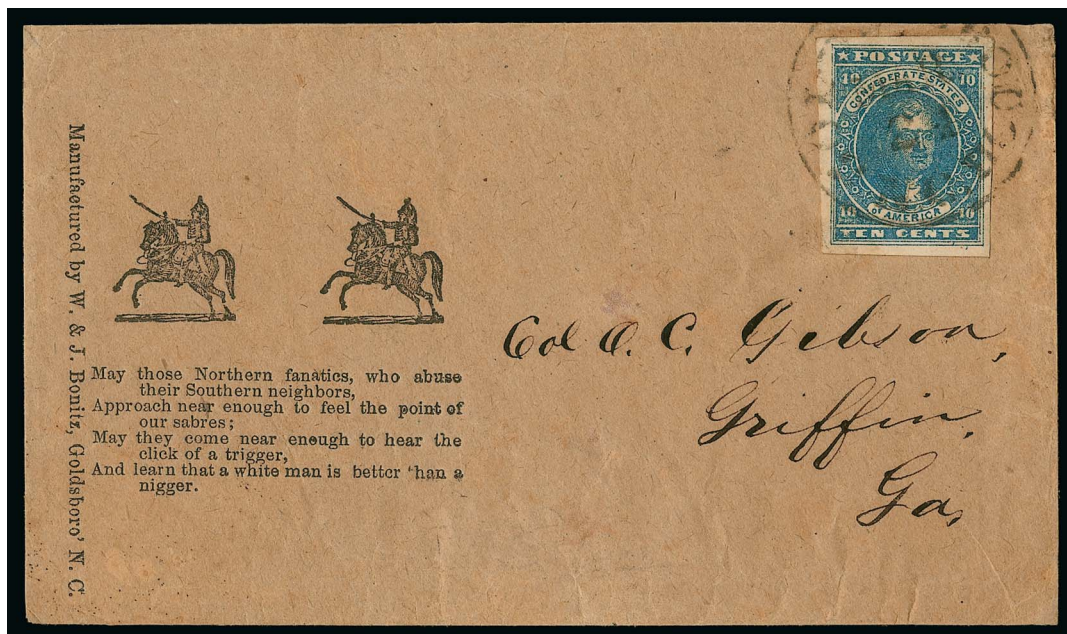 Manufactured by W. & J. Bonitz, Goldsboro' N. C.
May those Northern fanatics, who abuse
their Southern neighbors,
Approach near enough to feel the point of
our sabres;
May they come near enough to hear the
click of a trigger,
And learn that a white man is better 'han a
nigger.
★POSTAGE★
10 10
CONFEDERATE STATES
of AMERICA
10 10
TEN CENTS
Col O. C. Gibson,
Griffin,
Ga,